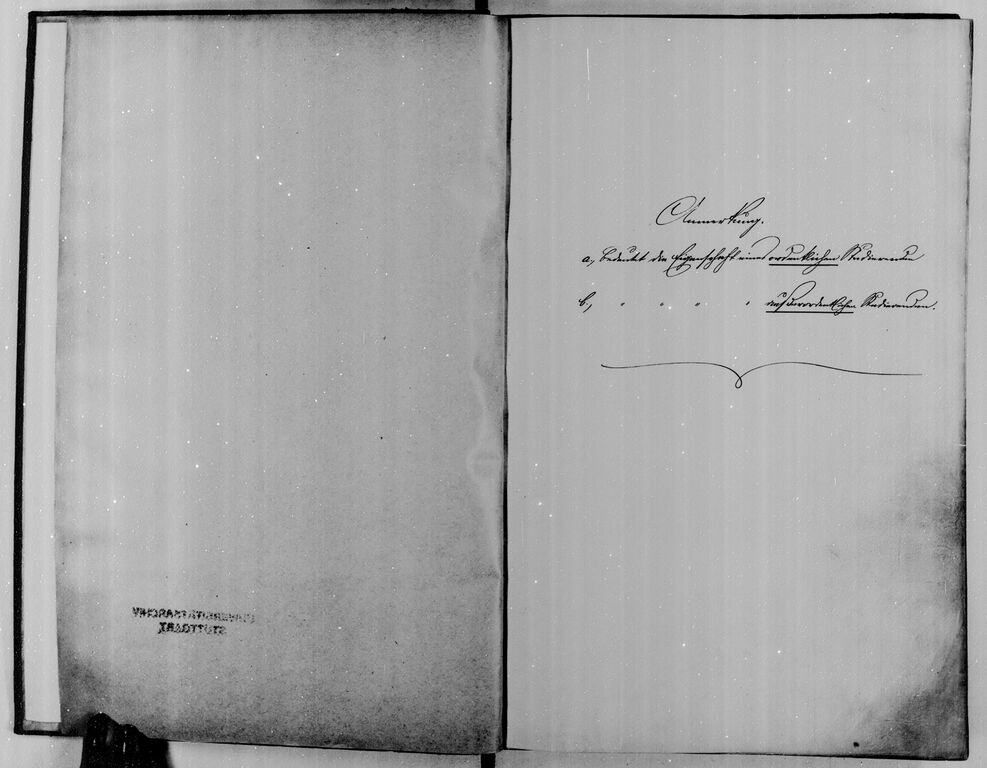 UNIVERSITÄTSARCHIV
STUTTGART
Anmerkung.
a, bedeutet die Eigenschaft eines ordentlichen Studierenden
b, " " " " außerordentlichen Studierenden.